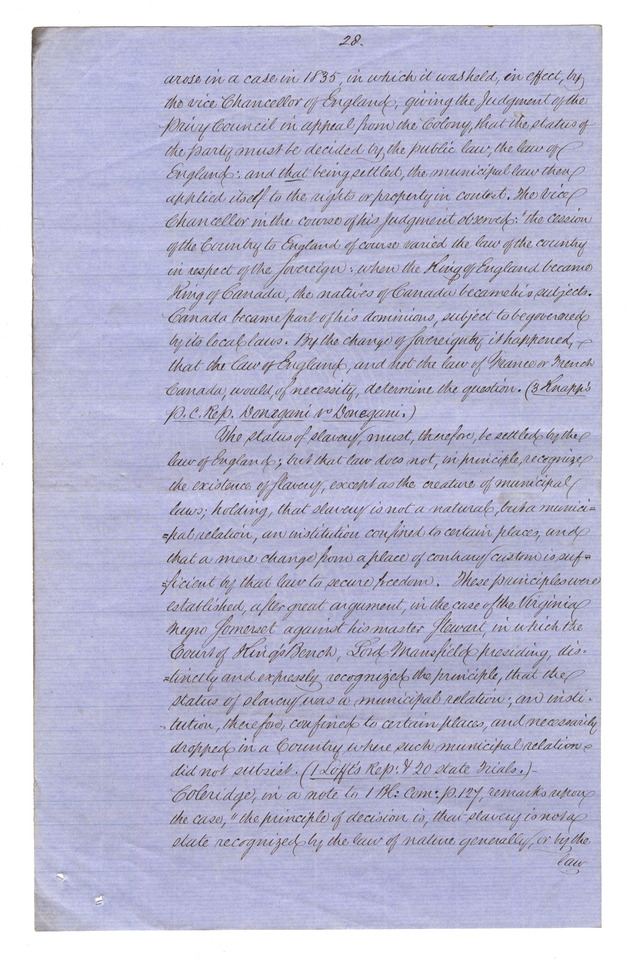 28.
arose in a case in 1835, in which it was held, in effect, by
the vice Chancellor of England, giving the Judgment of the
Privy Council in appeal from the Colony, that the status of
the party must be decided by the public law, the law of
England: and that being settled, the municipal law then
applied itself to the rights or property in contest. The vice
Chancellor in the course of his Judgment observed: "the cession
of the Country to England of course varied the law of the country
in respect of the Sovereign: when the King of England became
King of Canada, the natives of Canada became his subjects.
Canada became part of his dominions, subject to be governed
by its local laws. By the change of Sovereignty it happened,
that the law of England, and not the law of France or French
Canada, would, of necessity, determine the question. (3 Knapp's
P. C. Rep. Donegani vs Donegani.)
The status of slavery, must, therefore, be settled by the
law of England; but that law does not, in principle, recognize
the existence of Slavery, except as the creature of municipal
laws; holding, that slavery is not a natural, but a munici-
=pal relation, an institution confined to certain places, and
that a mere change from a place of contrary custom is suf=
=ficient by that law to secure freedom. These principles were
established, after great argument, in the case of the Virginia
negro Somerset against his master Stewart, in which the
Court of King's Bench, Lord Mansfield presiding, dis-
=tinctly and expressly recognized the principle, that the
status of slavery was a municipal relation; an insti-
-tution, therefore, confined to certain places, and necessarily
dropped in a Country where such municipal relation
did not subsist. (1 Lofft's Rep: & 20 State Trials.)-
Coleridge, in a note to 1 Bl: Com: p. 127, remarks upon
the case, "the principle of decision is, that slavery is not a
state recognized by the law of nature generally, or by the
law